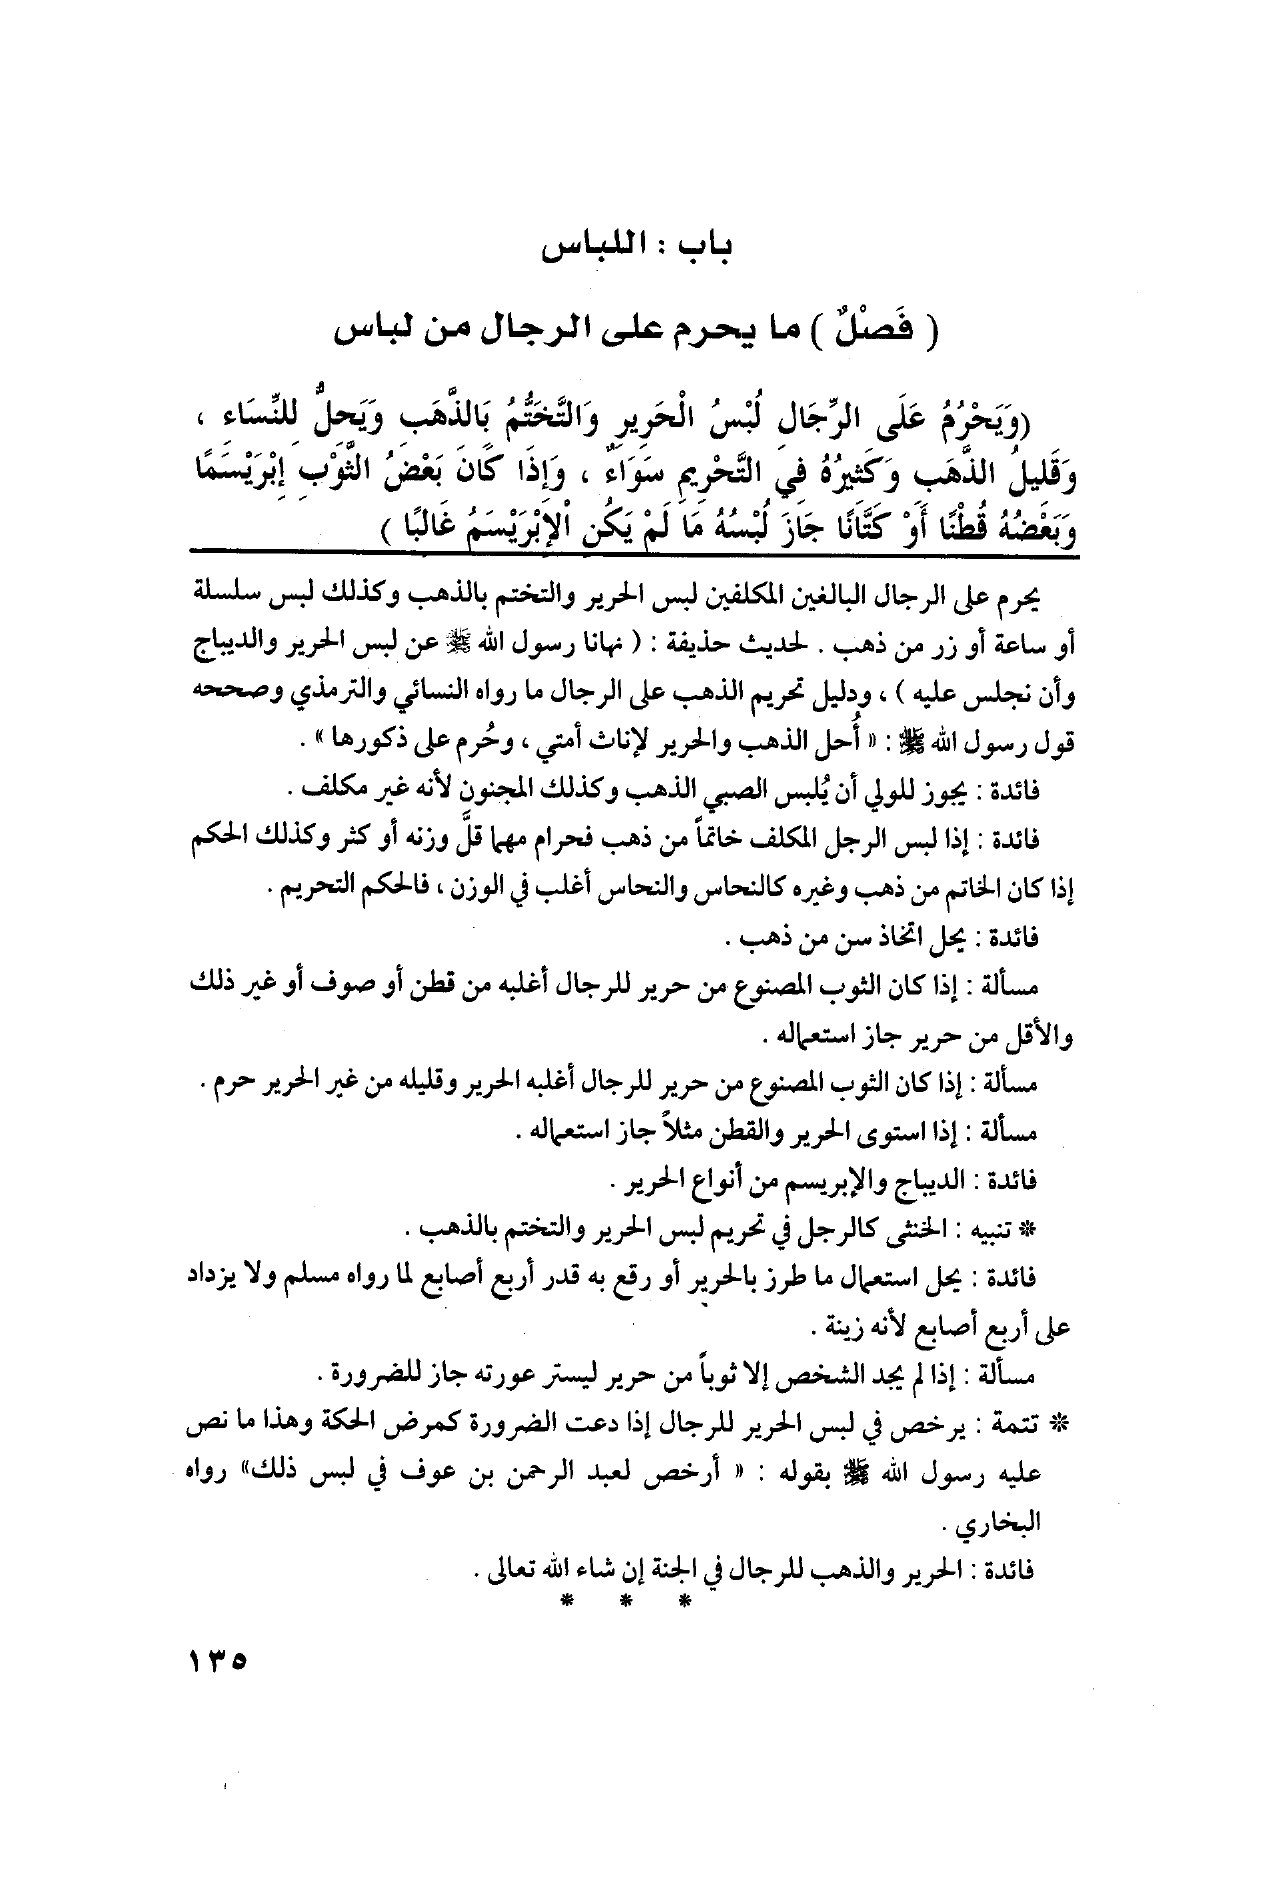 باب : اللباس
( فَصْلٌ ) ما يحرم على الرجال من لباس
(وَيَحْرُمُ عَلَى الرِّجَالِ لُبْسُ الْحَرِيرِ وَالتَّخَتُّمُ بَالذَّهَبِ وَيَحِلُّ لِلنِّسَاءِ ،
وَقَلِيلُ الذَّهَبِ وَكَثِيرُهُ فِي التَّحْرِيمِ سَوَاءٌ ، وَإِذَا كَانَ بَعْضُ الثَّوْبِ إِبْرَيْسَمًا
وَبَعْضُهُ قُطْنًا أَوْ كَتَّانًا جَازَ لُبْسُهُ مَا لَمْ يَكُنِ الْإِبْرَيْسَمُ غَالِبًا )
يحرم على الرجال البالغين المكلفين لبس الحرير والتختم بالذهب وكذلك لبس سلسلة
أو ساعة أو زر من ذهب . لحديث حذيفة : ( نهانا رسول الله ﷺ عن لبس الحرير والديباج
وأن نجلس عليه ) ، ودليل تحريم الذهب على الرجال ما رواه النسائي والترمذي وصححه
قول رسول الله ﷺ : « أُحل الذهب والحرير لإناث أمتي ، وحُرم على ذكورها » .
فائدة : يجوز للولي أن يُلبس الصبي الذهب وكذلك المجنون لأنه غير مكلف .
فائدة : إذا لبس الرجل المكلف خاتماً من ذهب فحرام مهما قلَّ وزنه أو كثر وكذلك الحكم
إذا كان الخاتم من ذهب وغيره كالنحاس والنحاس أغلب في الوزن ، فالحكم التحريم .
فائدة : يحل اتخاذ سن من ذهب .
مسألة : إذا كان الثوب المصنوع من حرير للرجال أغلبه من قطن أو صوف أو غير ذلك
والأقل من حرير جاز استعماله .
مسألة : إذا كان الثوب المصنوع من حرير للرجال أغلبه الحرير وقليله من غير الحرير حرم .
مسألة : إذا استوى الحرير والقطن مثلاً جاز استعماله .
فائدة : الديباج والإبريسم من أنواع الحرير .
* تنبيه : الخنثى كالرجل في تحريم لبس الحرير والتختم بالذهب .
فائدة : يحل استعمال ما طرز بالحرير أو رقع به قدر أربع أصابع لما رواه مسلم ولا يزداد
على أربع أصابع لأنه زينة .
مسألة : إذا لم يجد الشخص إلا ثوباً من حرير ليستر عورته جاز للضرورة .
* تتمة : يرخص في لبس الحرير للرجال إذا دعت الضرورة كمرض الحكة وهذا ما نص
عليه رسول الله ﷺ بقوله : « أرخص لعبد الرحمن بن عوف في لبس ذلك» رواه
البخاري .
فائدة : الحرير والذهب للرجال في الجنة إن شاء الله تعالى .
* * *
١٣٥